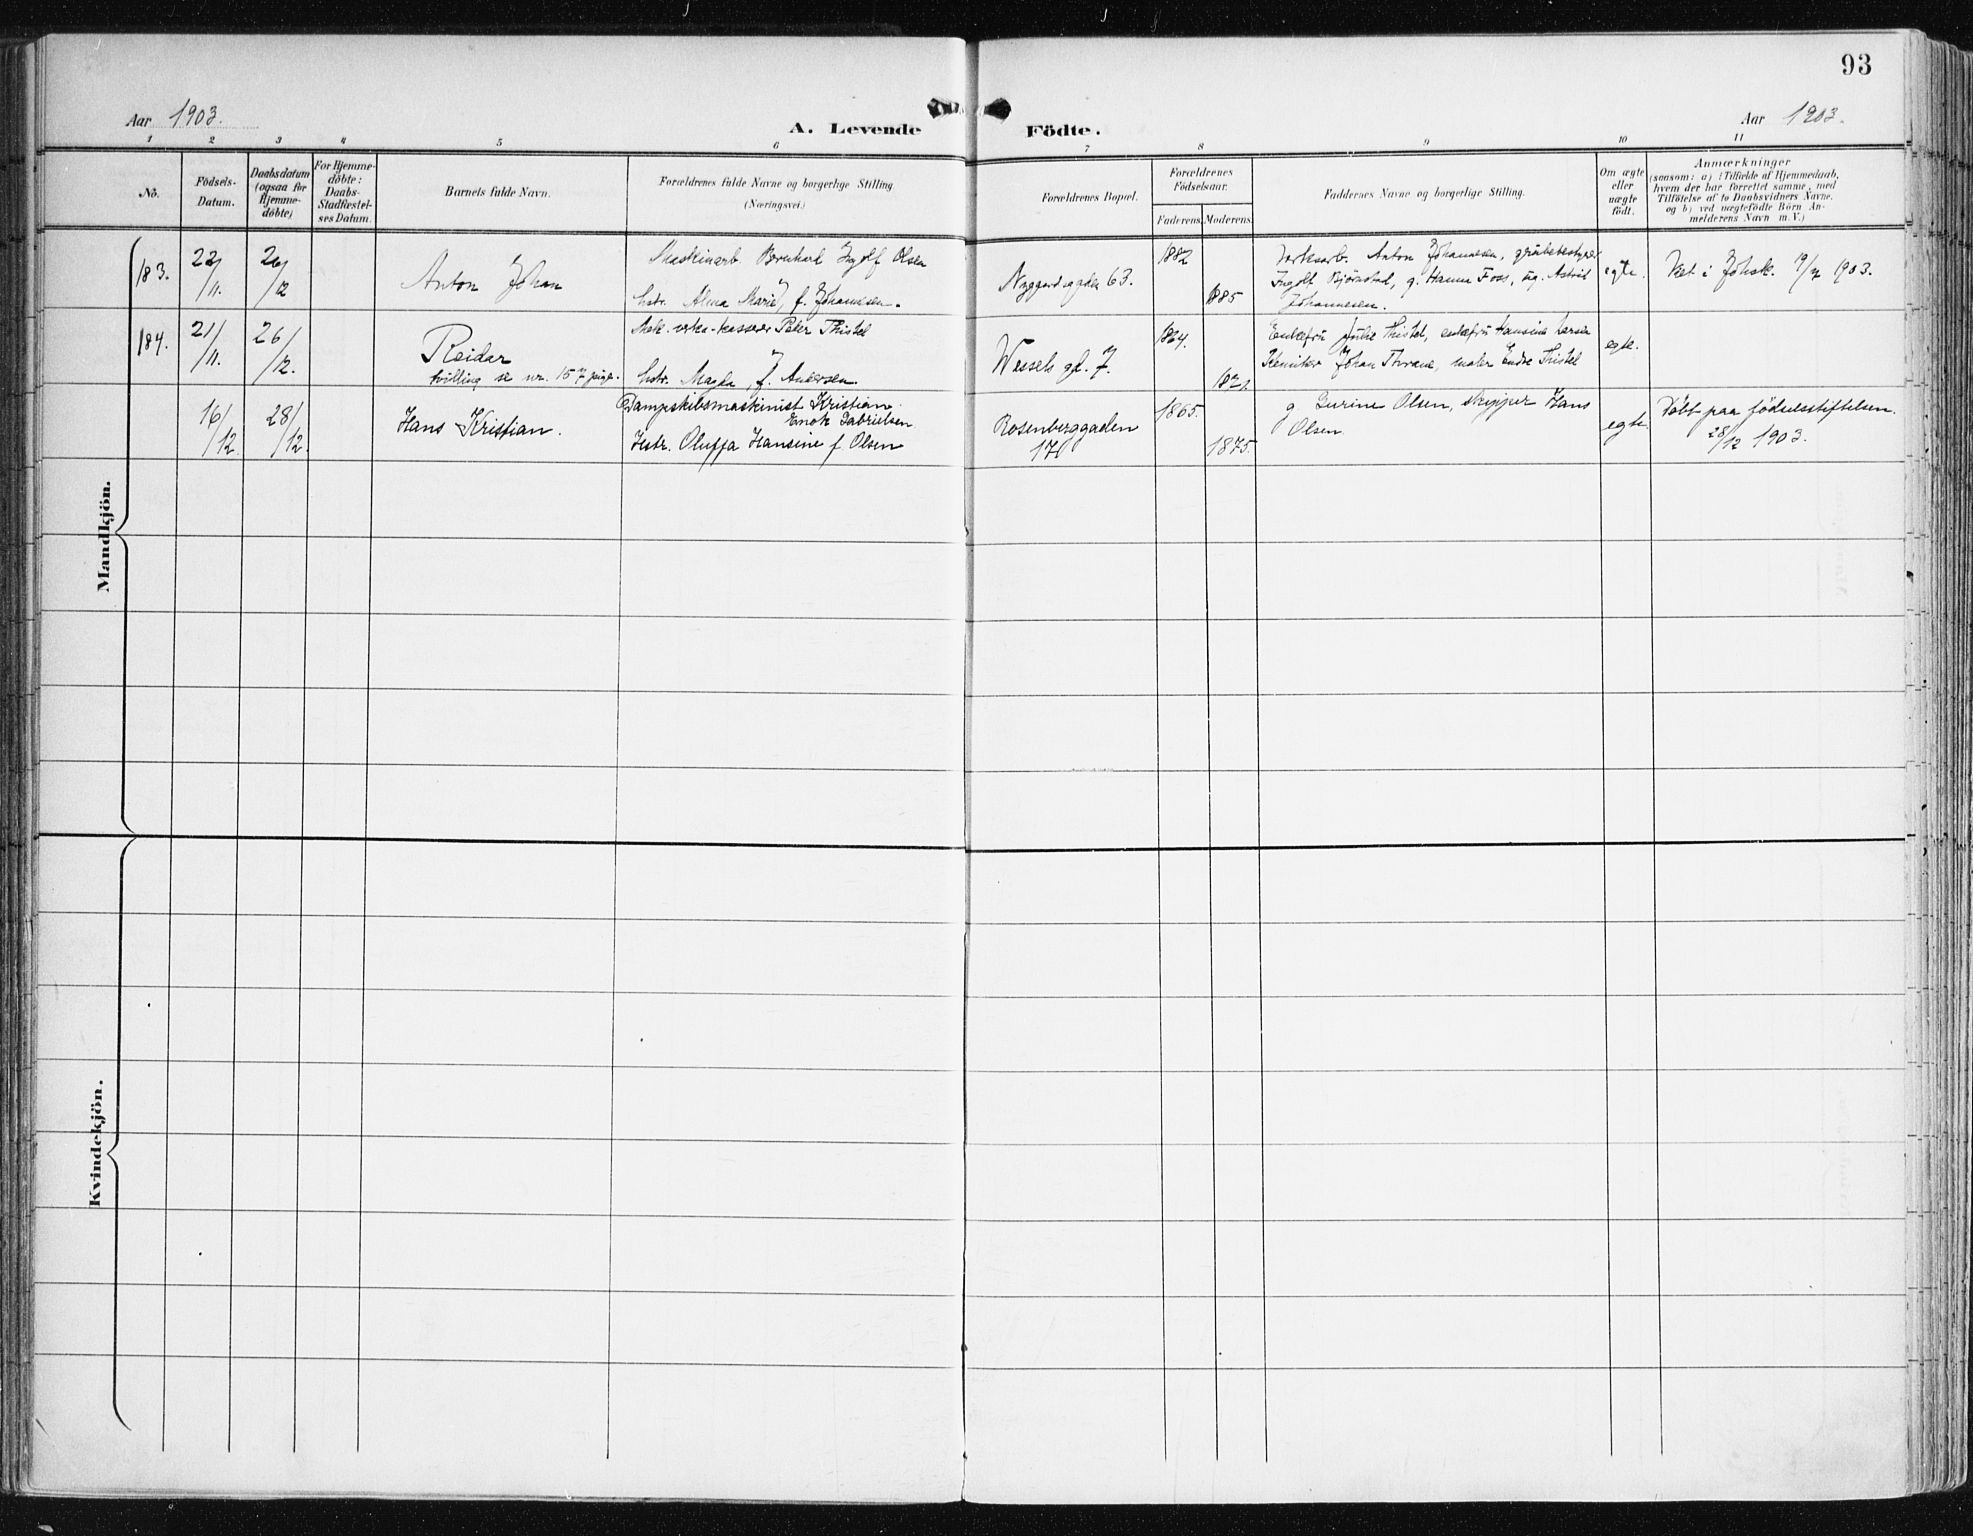 93
Aar 1903.
A. Levende Födte.
Aar 1903.
1 2 3 4 5 6 7 8 9 10 11
No.
Födsels-
Datum.
Daabsdatum
(ogsaa for
Hjemme-
döbte)
For Hjemme-
döbte:
Daabs-
Stadfæstel-
ses Datum.
Barnets fulde Navn.
Forældrenes fulde Navne og borgerlige Stilling
(Næringsvei.)
Forældrenes Bopæl.
Forældrenes
Födselsaar.
Faderens. Moderens.
Faddernes Navne og borgerlige Stilling.
Om ægte
eller
uægte
födt.
Anmærkninger
(saasom: a) i Tilfælde af Hjemmedaab,
hvem der har forrettet samme, med
Tilföielse af to Daabsvidners Navne,
og b) ved uægtefödte Börn An-
melderens Navn m. V.)
Mandkjön.
183.
22/11.
26/12
Anton Johan
Maskinarb Bernhard Ingolf Olsen
hstr. Alma Marie, f. Johannesen.
Nygaardsgaden 63.
1882
1885
Anton Johannesen,
Ingolf Bjørnstad, g. Hanna Foss, ug. Astrid
Johannesen.
egte.
Viet i Johsk. 1903.
184.
21/11.
26/12.
Reidar
tvilling se nr. 157 piger.
Mek. verks-kasserer Peter Thistel
hstr. Magda, f. Andersen.
Wessels gd. 7.
1864.
Enkefru Julie Thistel, enkefru Hansine Larsen
Kemiker Johan Thrane, maler Endre Thistel
egte.
16/12.
28/12.
Hans Kristian.
Dampskibsmaskinist Kristian
Enok Gabrielsen
Hstr. Oluffa Hansine f. Olsen
Rosenberggaden
17
1865.
1875.
g Gurine Olsen, skipper Hans
Olsen
egte
Døbt paa fødselsstiftelsen.
28/12 1903.
Kvindekjön.